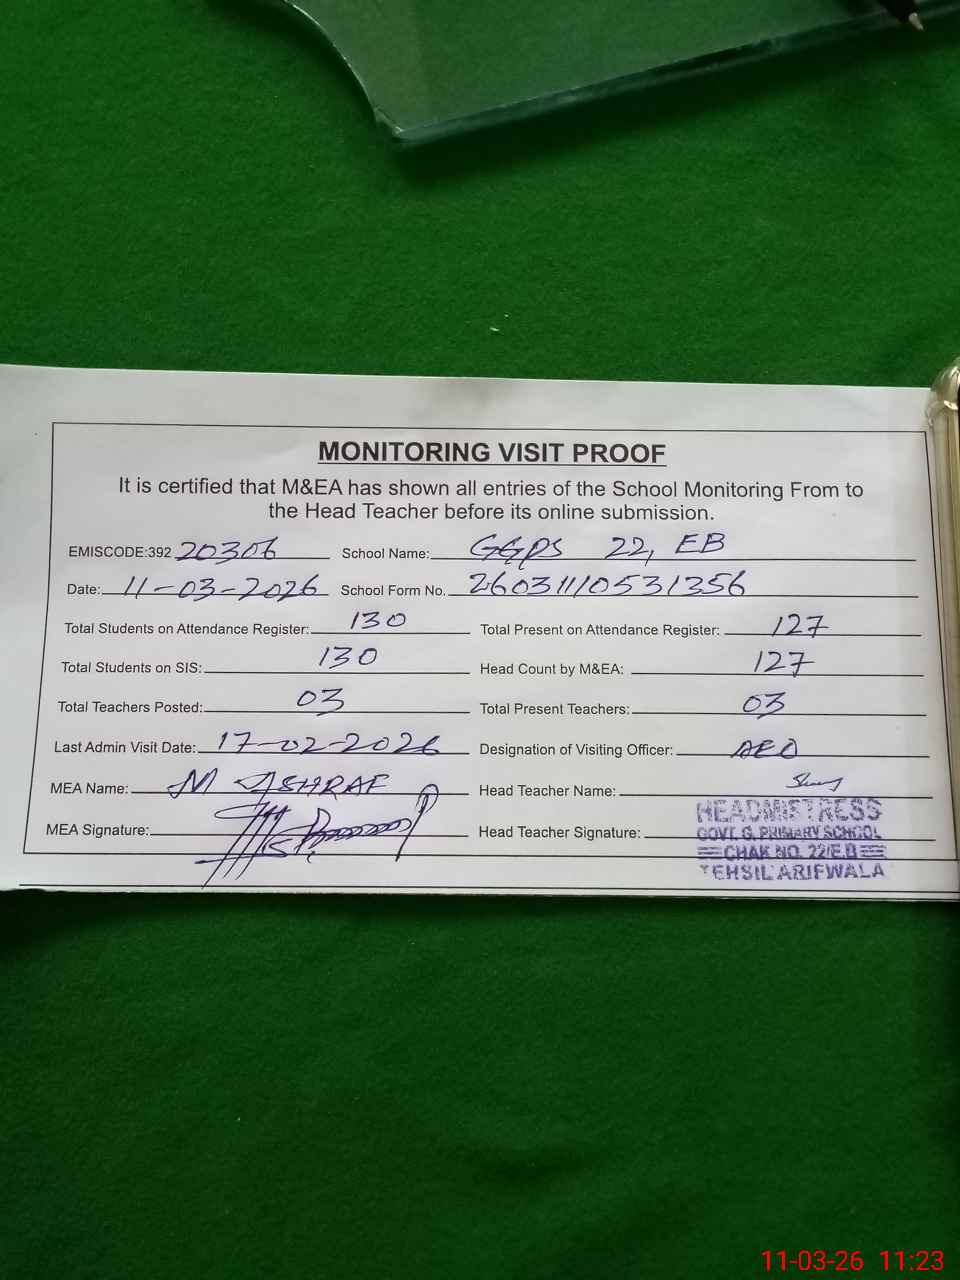 MONITORING VISIT PROOF
It is certified that M&EA has shown all entries of the School Monitoring From to
the Head Teacher before its online submission.
EMISCODE:392 20306 School Name: GGPS 22, EB
Date: 11-03-2026 School Form No. 26031110531356
Total Students on Attendance Register: 130 Total Present on Attendance Register: 127
Total Students on SIS: 130 Head Count by M&EA: 127
Total Teachers Posted: 03 Total Present Teachers: 03
Last Admin Visit Date: 17-02-2026 Designation of Visiting Officer: AEO
MEA Name: M ASHRAF Head Teacher Name:
MEA Signature: Head Teacher Signature:
HEADMISTRESS
GOVT. G. PRIMARY SCHOOL
CHAK NO. 22/E.B
TEHSIL ARIFWALA
11-03-26 11:23